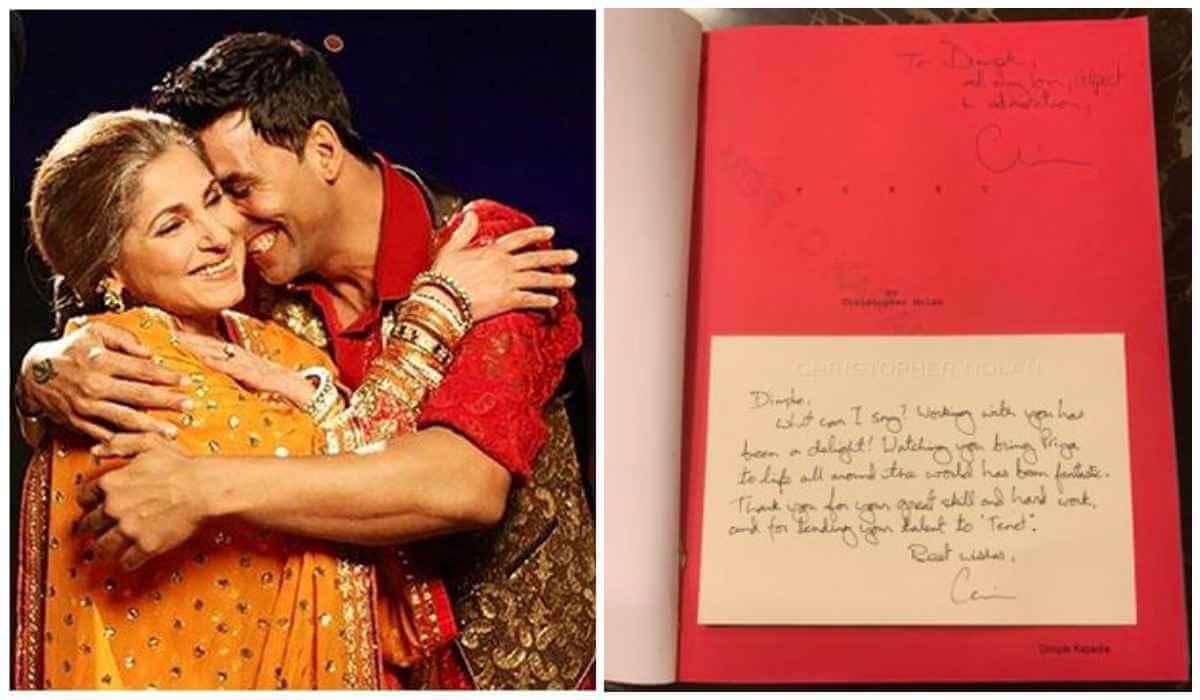 To Dimple,
all my love, respect
& admiration,
Chris
T E N E T
BY
Christopher Nolan
CHRISTOPHER NOLAN
Dimple,
What can I say? Working with you has
been a delight! Watching you bring Priya
to life all around the world has been fantastic.
Thank you for your great skill and hard work,
and for lending your talent to "Tenet".
Best wishes,
Chris
Dimple Kapadia